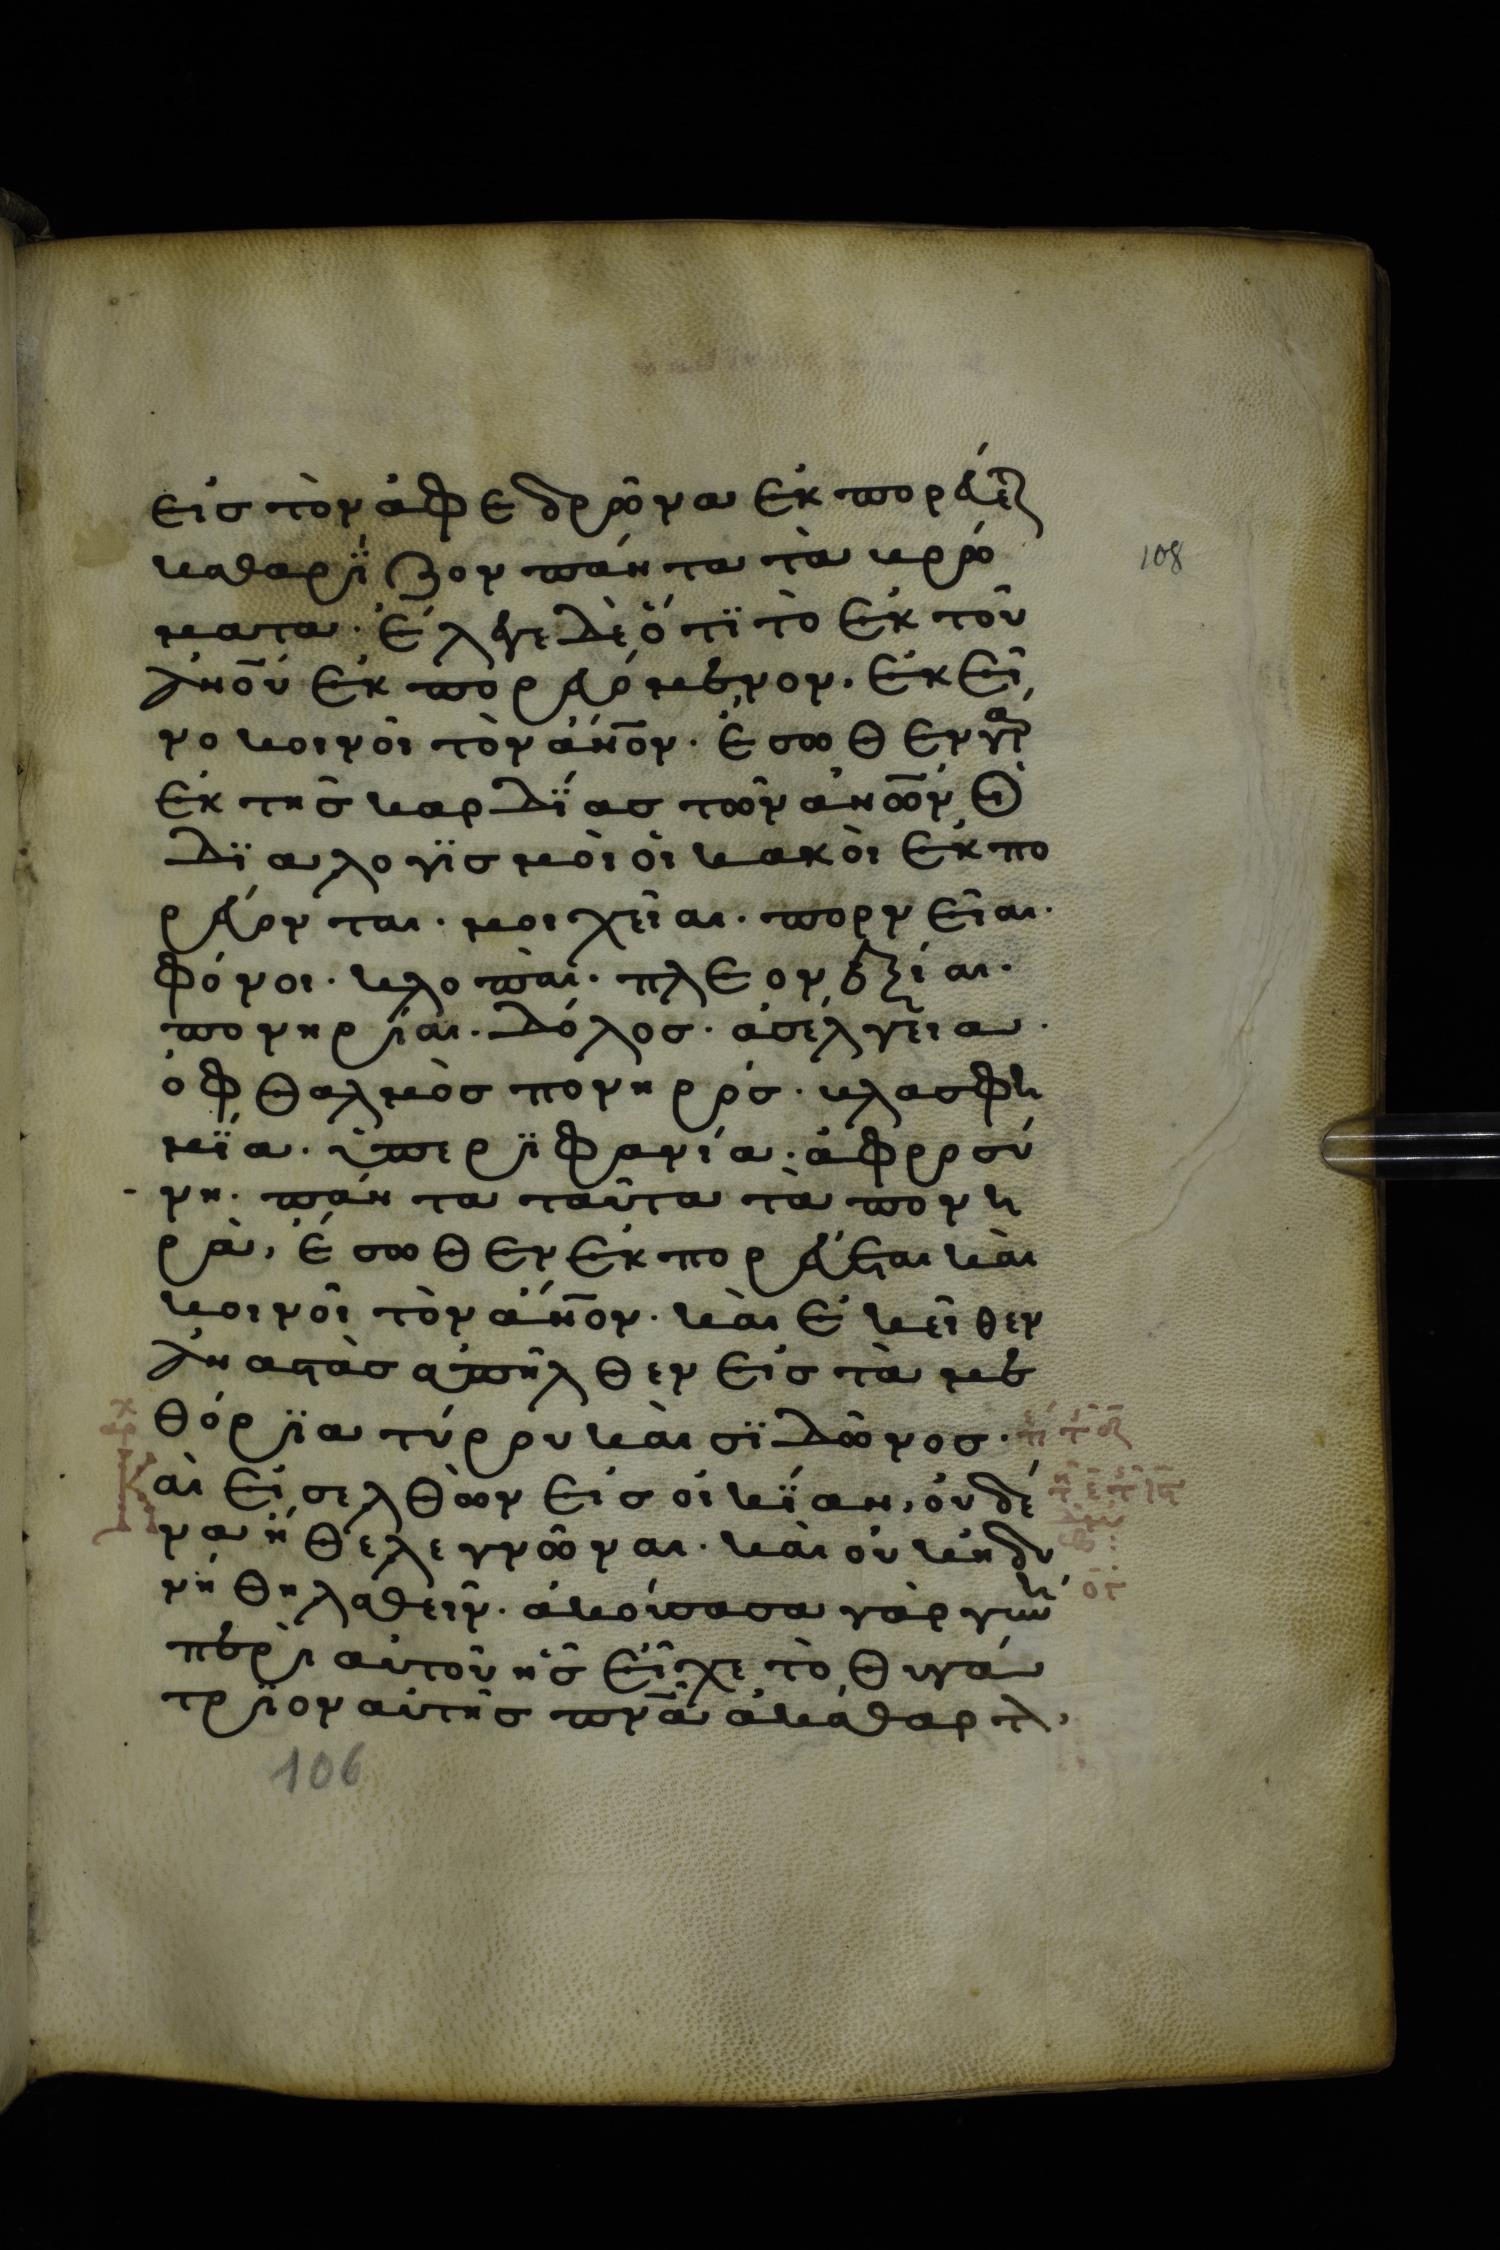 εἰς τὸν ἀφεδρῶνα ἐκπορεύετ
καθαρΐζον πάντα τὰ βρώ
ματα· ἔλεγε δὲ ὅτϊ τὸ ἐκ τοῦ
ἀν̅ου ἐκπορευόμενον· ἐκεῖ
νο κοινοῖ τὸν ἄν̅ον· ἔσωθεν γὰρ
ἐκ τῆς καρδΐας τῶν ἀν̅ων οἱ
δϊαλογϊσμοὶ οἱ κακοὶ ἐκπο
ρεύονται· μοιχεῖαι· πορνεῖαι·
φόνοι· κλοπαὶ· πλεονεξίαι·
πονηρίαι· δόλος· ἀσέλγεια·
ὀφθαλμὸς πονηρός· βλασφη
μΐα· ὑπερϊφανία· ἀφροσύ
νη· πάντα ταῦτα τὰ πονη
ρὰ, ἔσωθεν ἐκπορεύεται καὶ
κοινοῖ τὸν ἄν̅ον· καὶ ἐκεῖθεν
ἀναστὰς ἀπῆλθεν εἰς τὰ με
θόρϊα τύρου καὶ σϊδῶνος·
Καὶ εἰσελθὼν εἰς οἰκΐαν, οὐδέ
να ἤθελε γνῶναι· καὶ οὐκ ἠδυ
νήθη λαθεῖν· ἀκούσασα γὰρ γυνὴ
περὶ αὐτοῦ ἧς εἶχε τὸ θυγά
τρϊον αὐτῆς πν̅α ἀκάθαρτον,
108
106